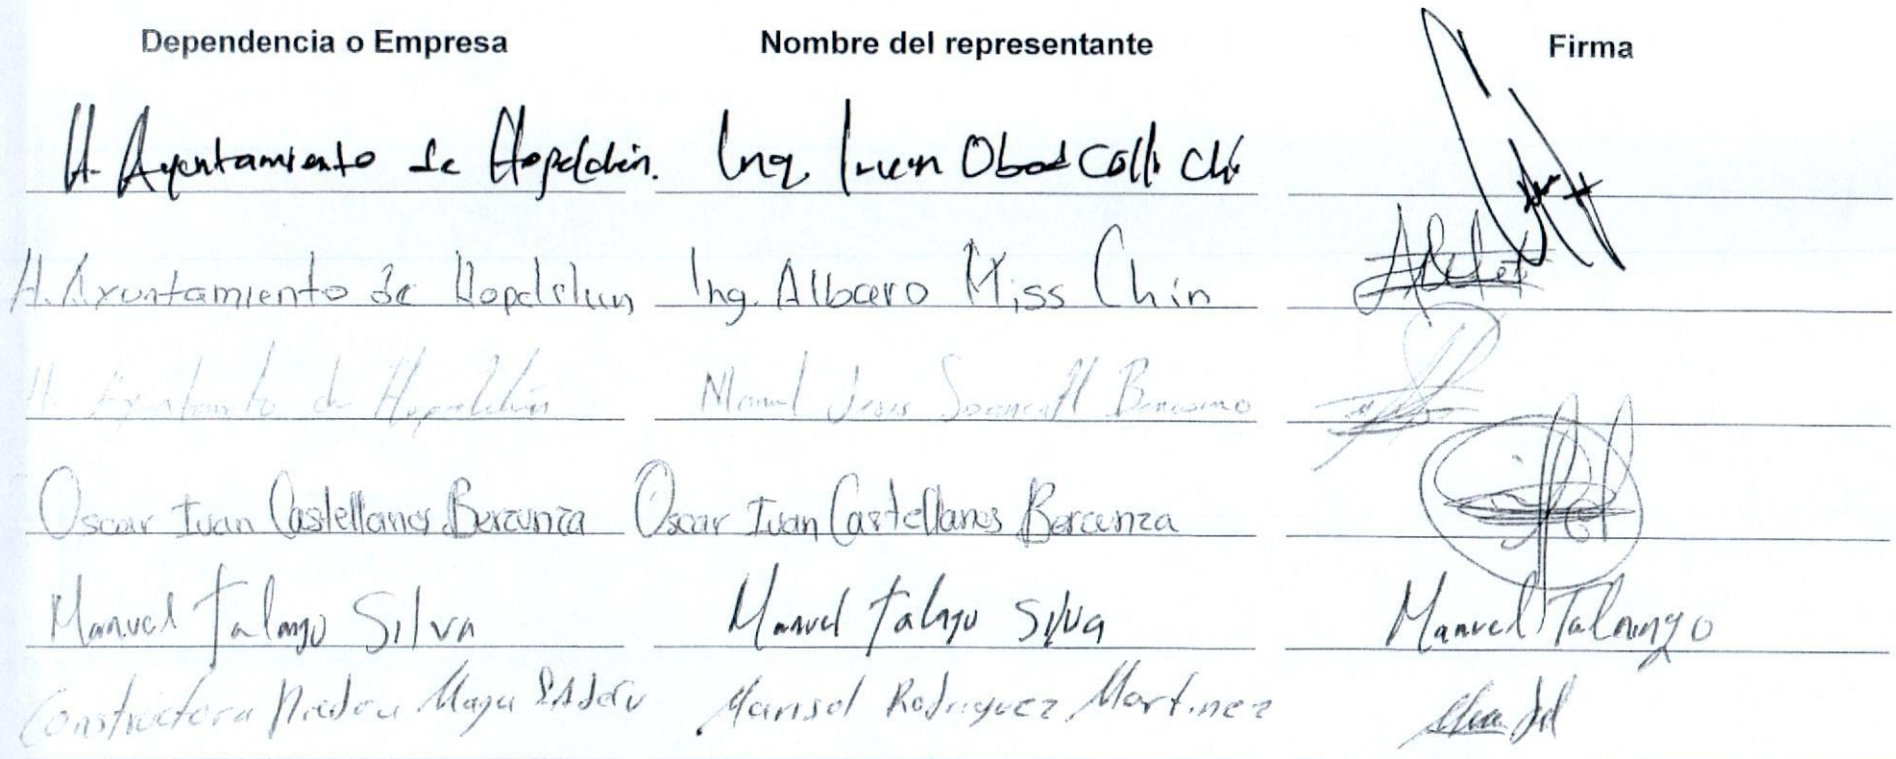 Dependencia o Empresa Nombre del representante Firma
H. Ayuntamiento de Hopelchén. Ing. Ivan Obed Colli Chi
H. Ayuntamiento de Hopelchen Ing. Albaro Miss Chin
H. Ayuntamiento de Hopelchén Manuel Jesus
Oscar Ivan Castellanos Berzunza Oscar Ivan Castellanos Berzunza
Manuel Talango Silva Manuel Talango Silva Manuel Talango
Constructora Piedra Maya SA de CV Marisol Rodriguez Martinez